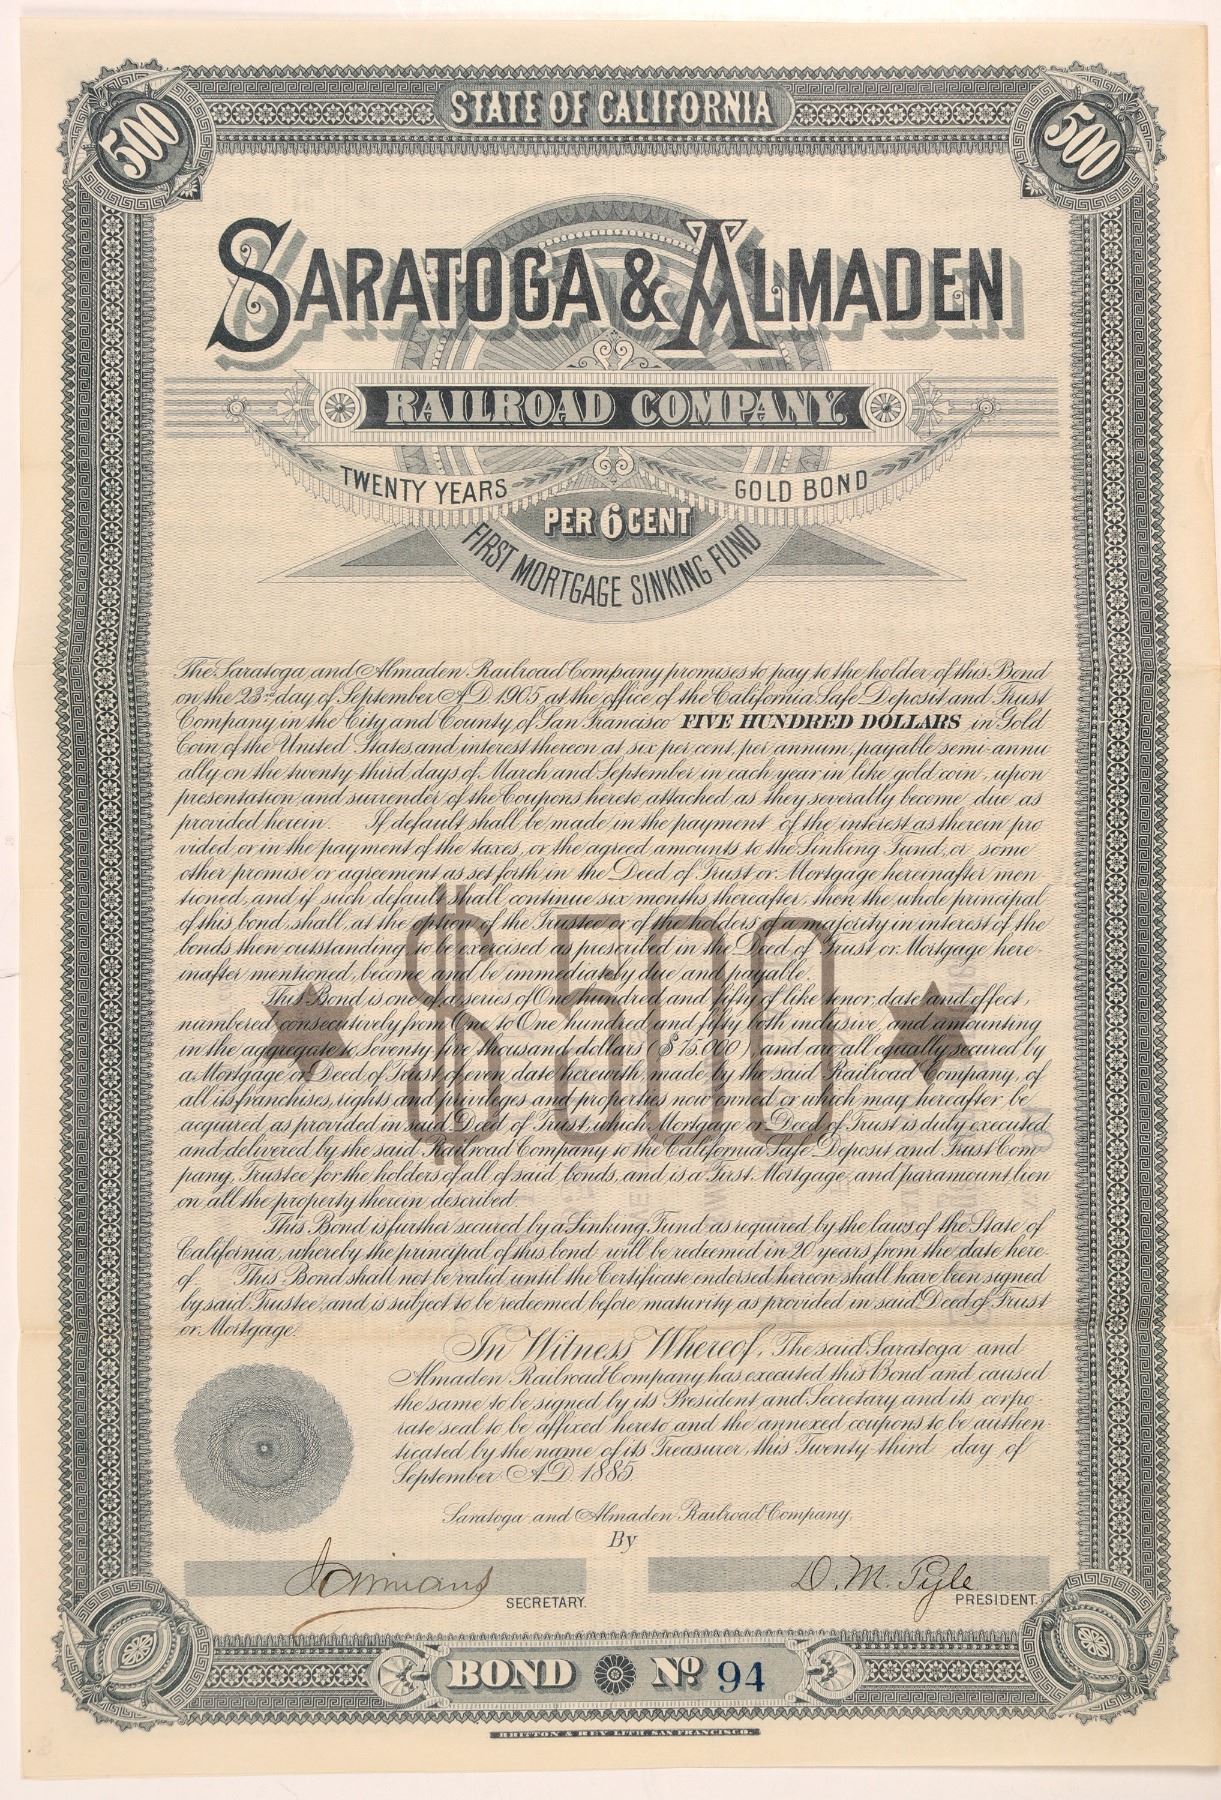 STATE OF CALIFORNIA
500
500
SARATOGA & ALMADEN
RAILROAD COMPANY.
TWENTY YEARS GOLD BOND
PER 6 CENT
FIRST MORTGAGE SINKING FUND
The Saratoga and Almaden Railroad Company promises to pay to the holder of this Bond
on the 23rd day of September A.D. 1905 at the office of the California Safe Deposit and Trust
Company in the City and County of San Francisco FIVE HUNDRED DOLLARS in Gold
Coin of the United States and interest thereon at six per cent, per annum, payable semi-annu
ally on the twenty third days of March and September in each year in like gold coin, upon
presentation and surrender of the Coupons hereto attached as they severally become due as
provided herein. If default shall be made in the payment of the interest as therein pro
vided or in the payment of the taxes, or the agreed amounts to the Sinking Fund, or some
other promise or agreement as set forth in the Deed of Trust or Mortgage hereinafter men
tioned, and if such default shall continue six months thereafter, then the whole principal
of this bond, shall, at the option of the Trustee or of the holders of a majority in interest of the
bonds then outstanding, to be exercised as prescribed in the Deed of Trust or Mortgage here-
inafter mentioned, become and be immediately due and payable.
This Bond is one of a series of One hundred and fifty of like tenor, date and effect,
numbered consecutively from One to One hundred and fifty both inclusive, and amounting
in the aggregate to Seventy five thousand dollars ($75.000), and are all equally secured by
a Mortgage or Deed of Trust of even date herewith, made by the said Railroad Company, of
all its franchises, rights and privileges and properties now owned or which may hereafter be
acquired, as provided in said Deed of Trust, which Mortgage or Deed of Trust is duly executed
and delivered by the said Railroad Company to the California Safe Deposit and Trust Com
pany, Trustee for the holders of all of said bonds, and is a First Mortgage, and paramount lien
on all the property therein described.
This Bond is further secured by a Sinking Fund as required by the laws of the State of
California, whereby the principal of this bond will be redeemed in 20 years from the date here-
of. This Bond shall not be valid until the Certificate endorsed hereon shall have been signed
by said Trustee, and is subject to be redeemed before maturity as provided in said Deed of Trust
or Mortgage.
$500
In Witness Whereof, The said Saratoga and
Almaden Railroad Company has executed this Bond and caused
the same to be signed by its President and Secretary and its corpo-
rate seal to be affixed hereto and the annexed coupons to be authen-
ticated by the name of its Treasurer, this Twenty third day of
September A.D. 1885.
Saratoga and Almaden Railroad Company,
By
SECRETARY.
D. M. Pyle
PRESIDENT.
BOND No 94
BRITTON & REY LITH. SAN FRANCISCO.